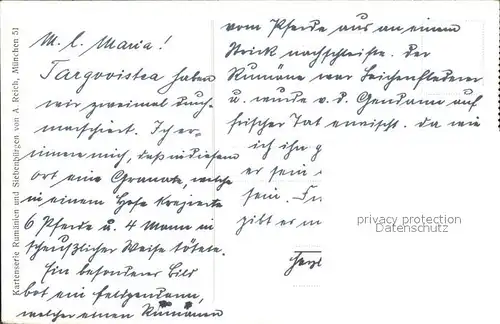 M. l. Maria!
Targovistea haben
wir zweimal durch-
marschiert. Ich er-
innere mich, daß in diesem
Ort eine Granate, welche
in einem Hofe krepierte
6 Pferde u. 4 Mann in
scheußlicher Weise tötete.
Ein besonderes Bild
bot ein Feldgendarm,
welcher einen Rumänen
vom Pferde aus an einem
Strick nachschleifte. Der
Rumäne war Leichenfledderer
u. wurde v. d. Gendarm auf
frischer Tat erwischt. Da wie
ich ihn
er sein
sein.
gibt er
privacy protection
Watermarks
Kartenserie Rumänien und Siebenbürgen von A. Reich, München 51